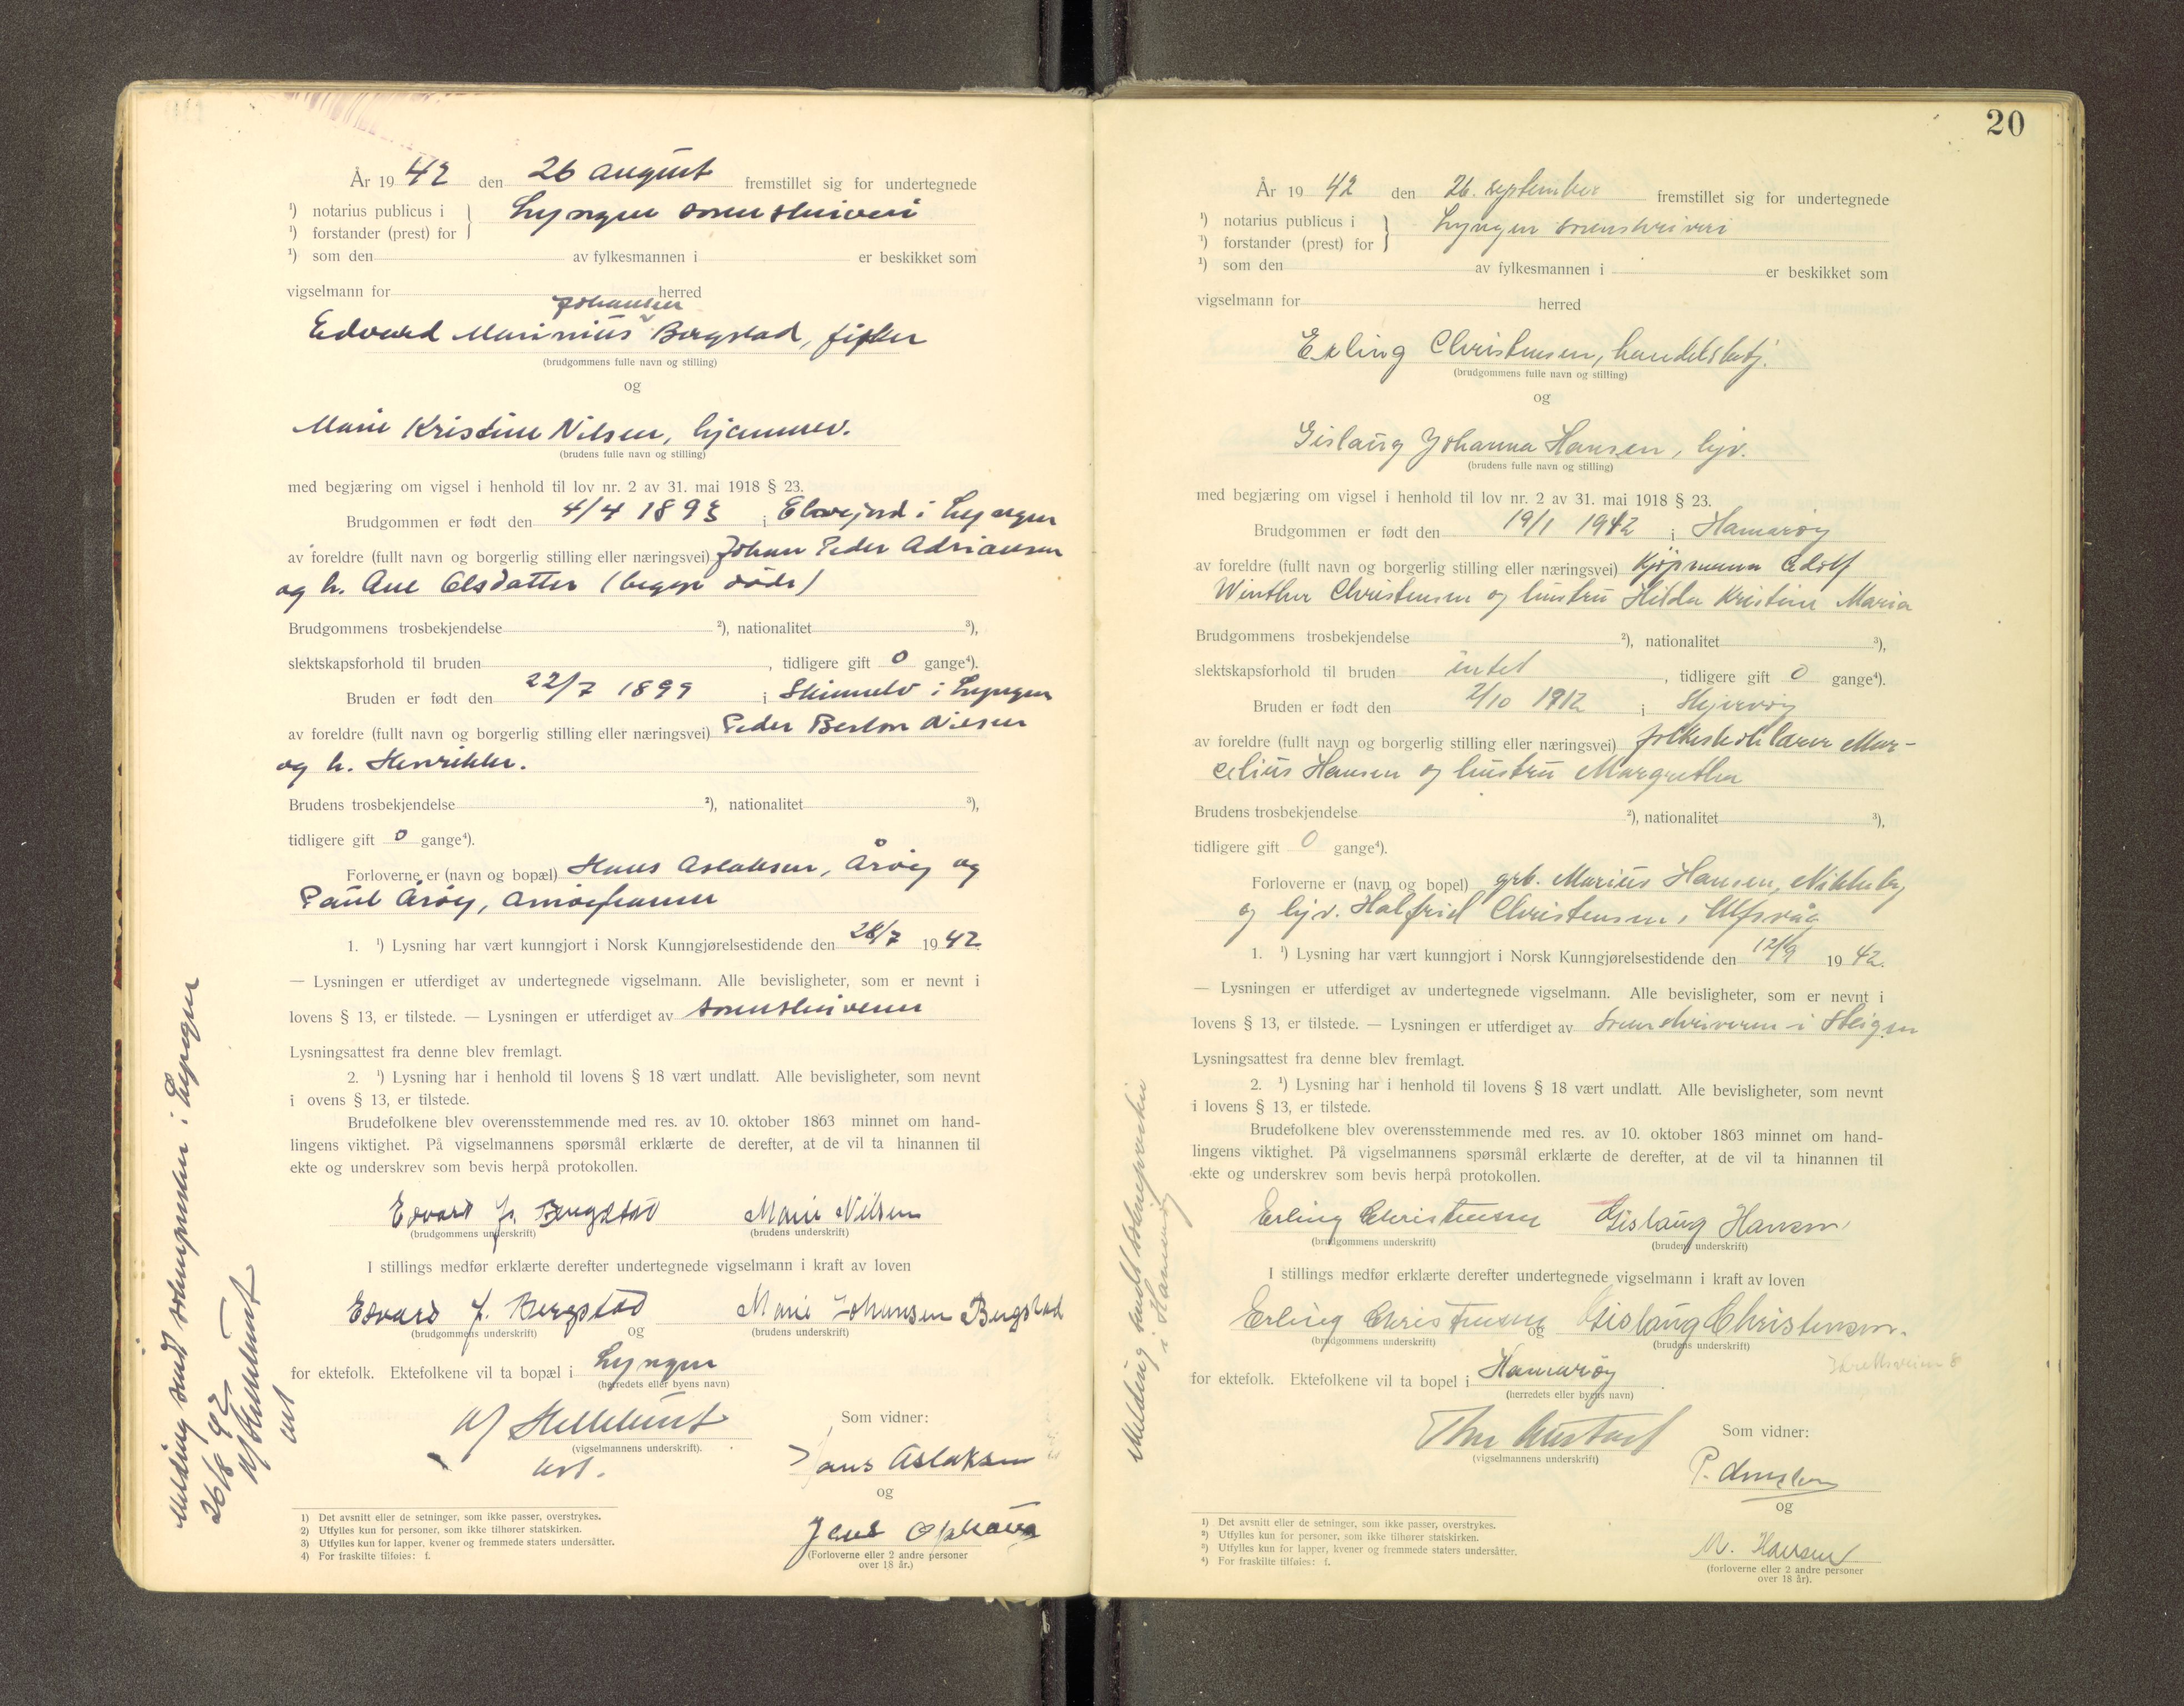 År 19 42 den 26 august fremstillet sig for undertegnede
¹) notarius publicus i } Lyngen sorenskriveri
¹) forstander (prest) for
¹) som den av fylkesmannen i er beskikket som
vigselmann for herred
Johansen
Edvard Marinius Bergstad, fisker
(brudgommens fulle navn og stilling)
og
Marie Kristine Nilsen, hjemmev.
(brudens fulle navn og stilling)
med begjæring om vigsel i henhold til lov nr. 2 av 31. mai 1918 § 23.
Brudgommen er født den 4/4 1893 i Elvejord i Lyngen
av foreldre (fullt navn og borgerlig stilling eller næringsvei) Johan Peder Adriansen
og h. Ane Olsdatter (begge døde)
Brudgommens trosbekjendelse ²), nationalitet ³),
slektskapsforhold til bruden , tidligere gift 0 gange⁴).
Bruden er født den 22/7 1899 i i Lyngen
av foreldre (fullt navn og borgerlig stilling eller næringsvei) Peder Nilsen
og h. Henrikke.
Brudens trosbekjendelse ²), nationalitet ³),
tidligere gift 0 gange⁴).
Forloverne er (navn og bopæl) Hans Aslaksen, Årøy og
Paul Årøy,
1. ¹) Lysning har vært kunngjort i Norsk Kunngjørelsestidende den 28/7 1942.
— Lysningen er utferdiget av undertegnede vigselmann. Alle bevisligheter, som er nevnt i
lovens § 13, er tilstede. — Lysningen er utferdiget av sorenskriveren
Lysningsattest fra denne blev fremlagt.
2. ¹) Lysning har i henhold til lovens § 18 vært undlatt. Alle bevisligheter, som nevnt
i ovens § 13, er tilstede.
Brudefolkene blev overensstemmende med res. av 10. oktober 1863 minnet om hand-
lingens viktighet. På vigselmannens spørsmål erklærte de derefter, at de vil ta hinannen til
ekte og underskrev som bevis herpå protokollen.
Edvard J. Bergstad Marie Nilsen
(brudgommens underskrift) (brudens underskrift)
I stillings medfør erklærte derefter undertegnede vigselmann i kraft av loven
Edvard J. Bergstad og Marie Johansen Bergstad
(brudgommens underskrift) (brudens underskrift)
for ektefolk. Ektefolkene vil ta bopæl i Lyngen
(herredets eller byens navn)
Som vidner:
(vigselmannens underskrift).
Hans Aslaksen
og
Jens
(Forloverne eller 2 andre personer
over 18 år.)
1) Det avsnitt eller de setninger, som ikke passer, overstrykes.
2) Utfylles kun for personer, som ikke tilhører statskirken.
3) Utfylles kun for lapper, kvener og fremmede staters undersåtter.
4) For fraskilte tilføies: f.
Melding sendt soknepresten i Lyngen
26/8 42
20
År 19 42 den 26. september fremstillet sig for undertegnede
¹) notarius publicus i } Lyngen sorenskriveri
¹) forstander (prest) for
¹) som den av fylkesmannen i er beskikket som
vigselmann for herred
Erling Christensen, handelsbetj.
(brudgommens fulle navn og stilling)
og
Gislaug Johanna Hansen, hjv.
(brudens fulle navn og stilling)
med begjæring om vigsel i henhold til lov nr. 2 av 31. mai 1918 § 23.
Brudgommen er født den 19/1 1942 i Hamarøy
av foreldre (fullt navn og borgerlig stilling eller næringsvei) Kjøpmann Adolf
Winther Christensen og hustru Hilda Kristine Maria
Brudgommens trosbekjendelse ²), nationalitet ³),
slektskapsforhold til bruden intet , tidligere gift 0 gange⁴).
Bruden er født den 2/10 1912 i Skjervøy
av foreldre (fullt navn og borgerlig stilling eller næringsvei) folkeskolelærer Mar-
celius Hansen og hustru Margrethe
Brudens trosbekjendelse ²), nationalitet ³),
tidligere gift 0 gange⁴).
Forloverne er (navn og bopel) grb. Marius Hansen, Nikkeby
og hjv. Halfrid Christensen, Ulfsvåg
1. ¹) Lysning har vært kunngjort i Norsk Kunngjørelsestidende den 12/9 1942.
— Lysningen er utferdiget av undertegnede vigselmann. Alle bevisligheter, som er nevnt i
lovens § 13, er tilstede. — Lysningen er utferdiget av Sorenskriveren i Steigen
Lysningsattest fra denne blev fremlagt.
2. ¹) Lysning har i henhold til lovens § 18 vært undlatt. Alle bevisligheter, som nevnt
i lovens § 13, er tilstede.
Brudefolkene blev overensstemmende med res. av 10. oktober 1863 minnet om hand-
lingens viktighet. På vigselmannens spørsmål erklærte de derefter, at de vil ta hinannen til
ekte og underskrev som bevis herpå protokollen.
Erling Christensen Gislaug Hansen
(brudgommens underskrift) (brudens underskrift)
I stillings medfør erklærte derefter undertegnede vigselmann i kraft av loven
Erling Christensen og Gislaug Christensen.
(brudgommens underskrift) (brudens underskrift)
for ektefolk. Ektefolkene vil ta bopel i Hamarøy
(herredets eller byens navn)
Som vidner:
(vigselmannens underskrift)
og
M. Hansen
(forloverne eller 2 andre personer
over 18 år).
¹) Det avsnitt eller de setninger, som ikke passer, overstrykes.
²) Utfylles kun for personer, som ikke tilhører statskirken.
³) Utfylles kun for lapper, kvener og fremmede staters undersåtter.
⁴) For fraskilte tilføies: f.
Melding sendt soknepresten
i Hamarøy